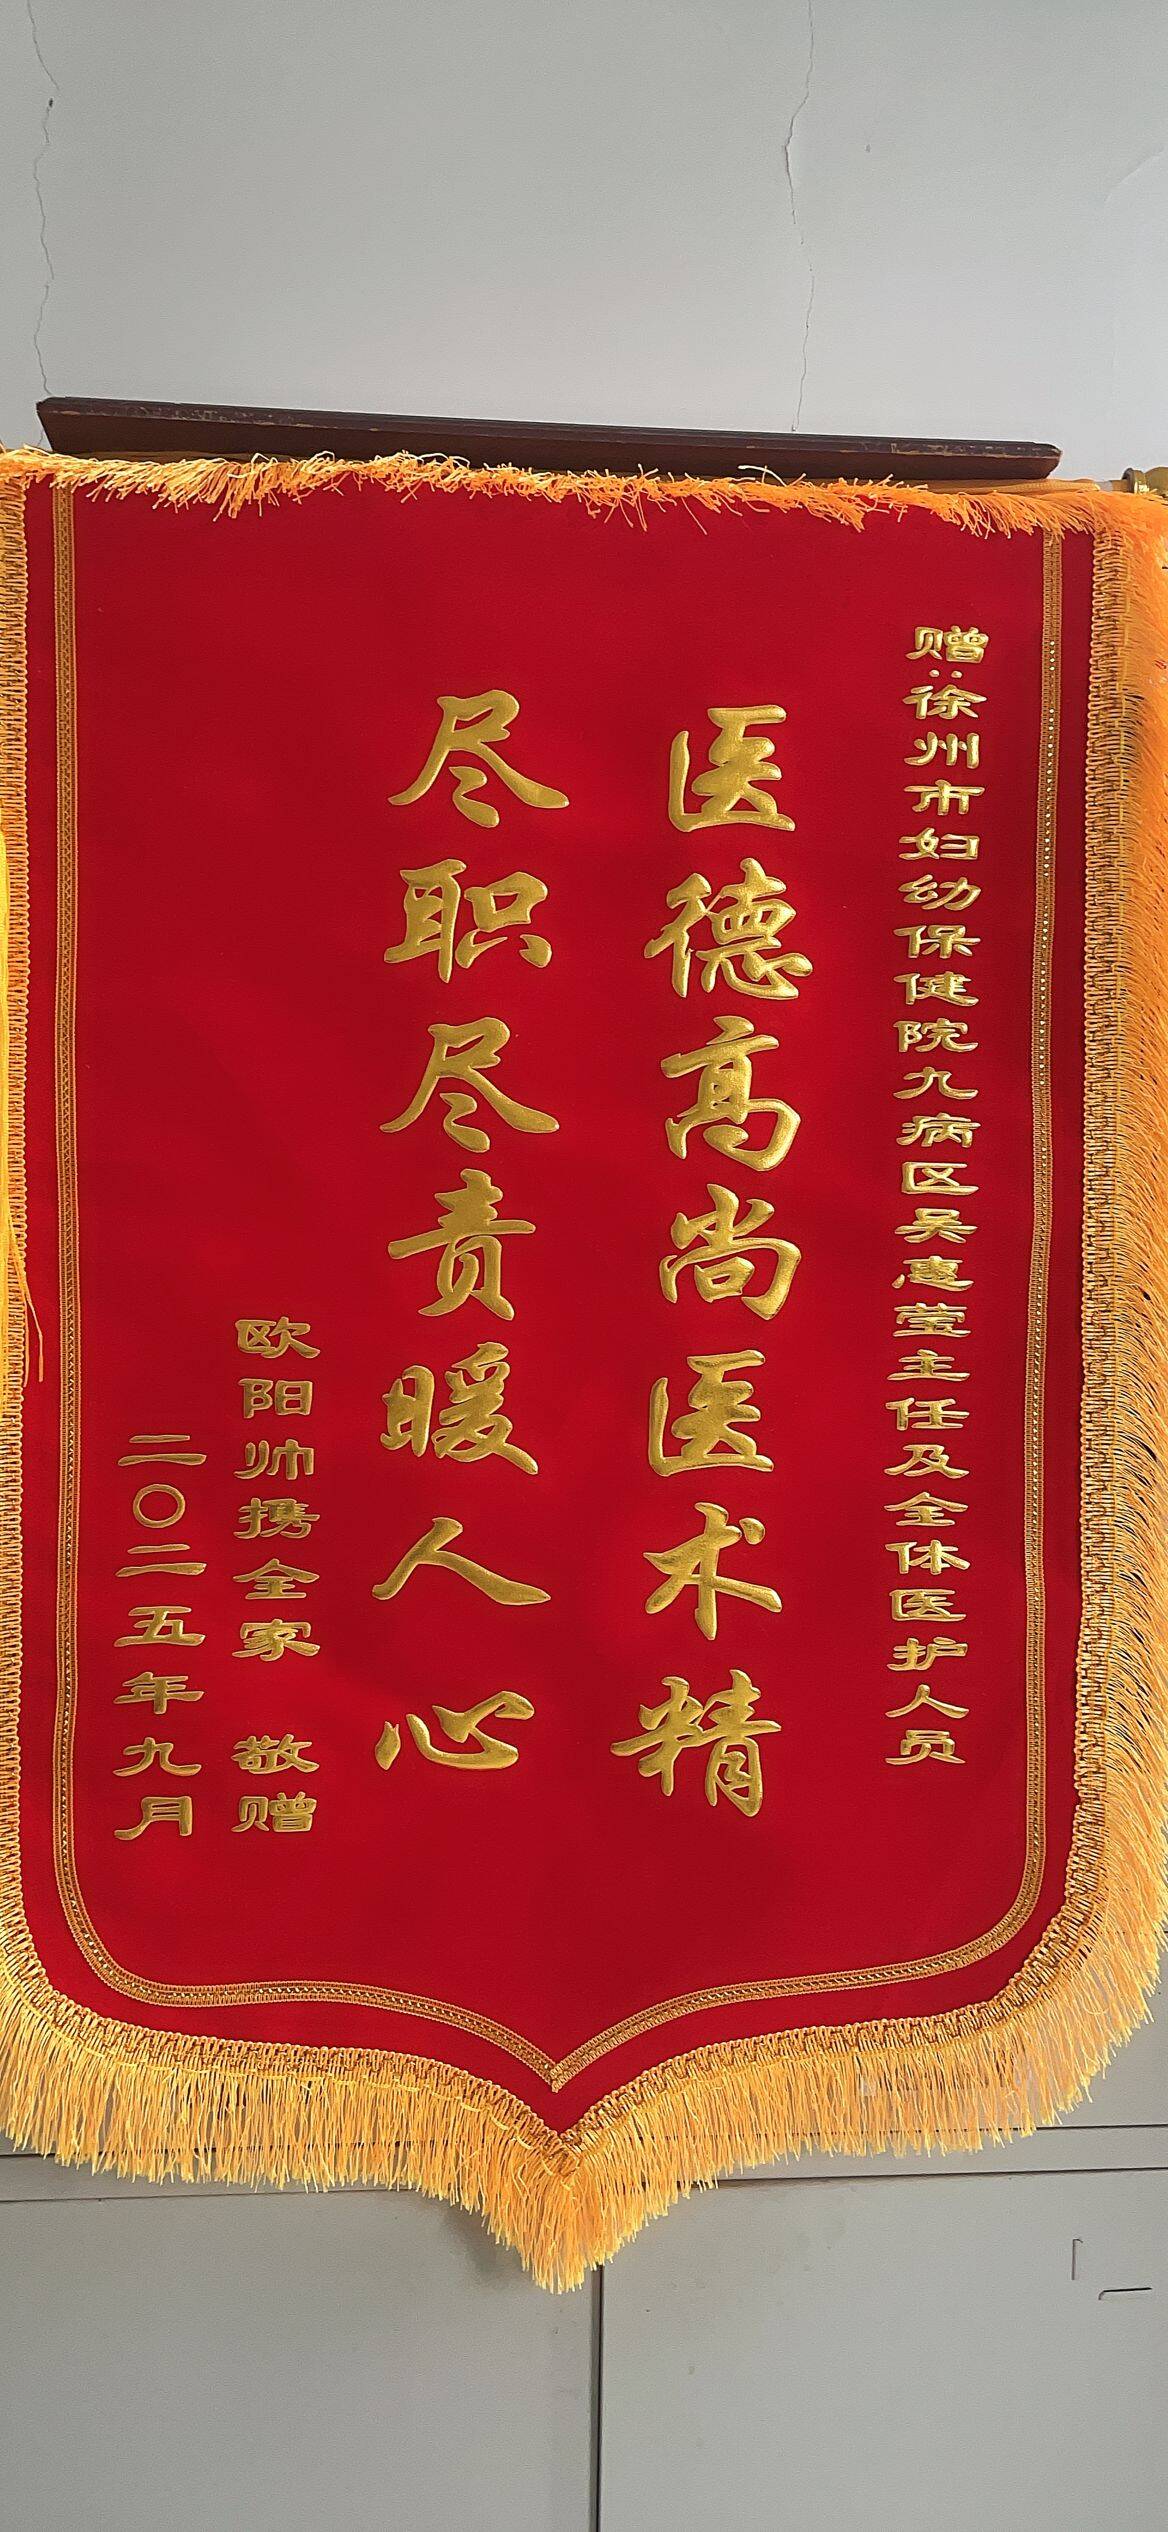 赠:徐州市妇幼保健院九病区吴惠莹主任及全体医护人员
医德高尚医术精
尽职尽责暖人心
欧阳帅携全家 敬赠
二〇二五年九月